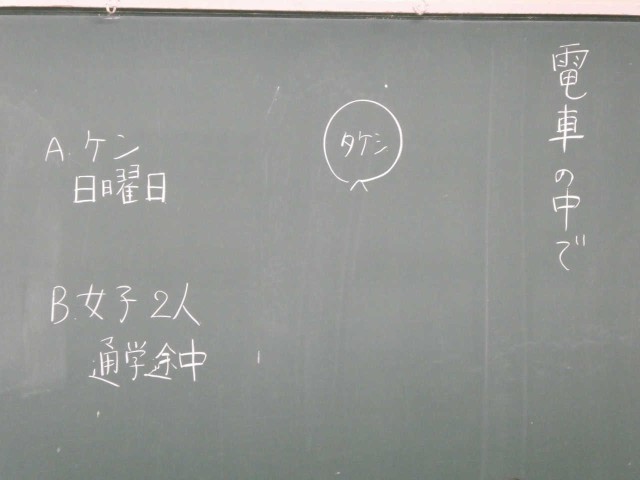 電車の中で
タケシ
A.ケン
日曜日
B.女子2人
通学途中